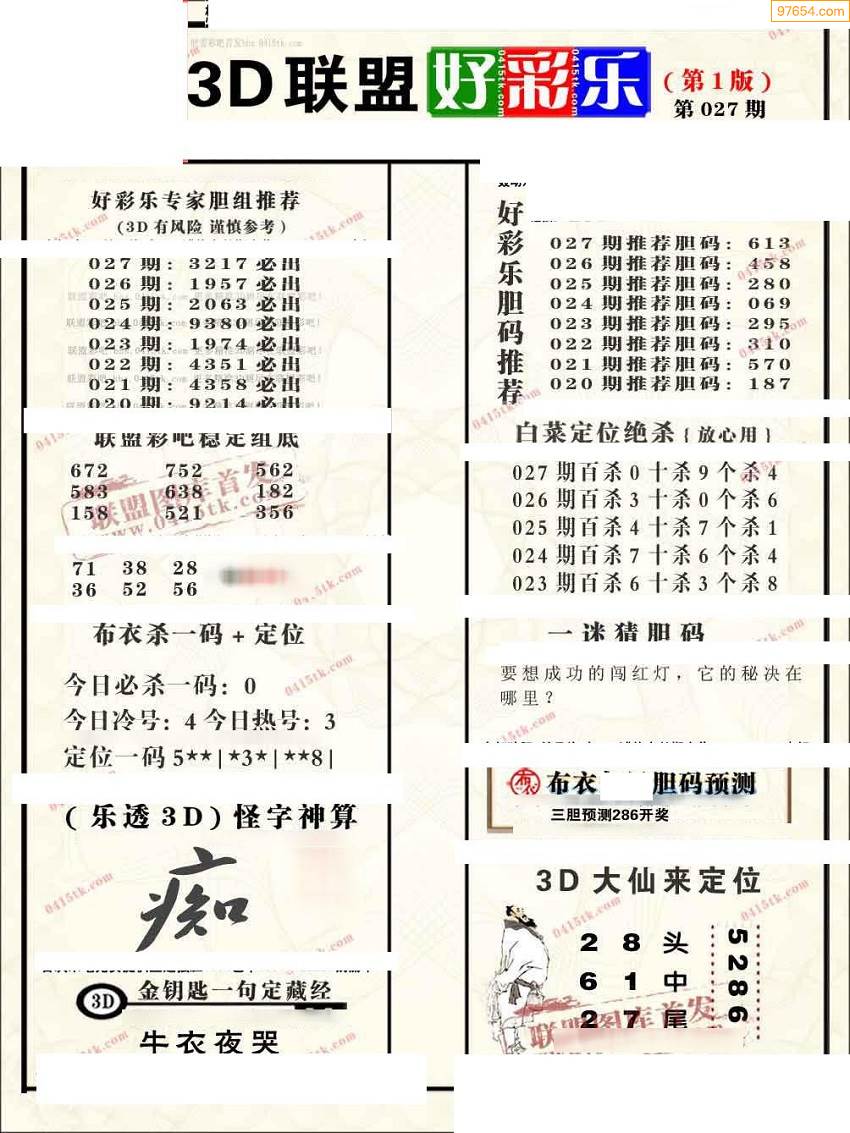 97654.com
3D联盟好彩乐
0415tk.com 0415tk.com 0415tk.com
(第1版)
第027期
好彩乐专家胆组推荐
(3D有风险 谨慎参考)
027期: 3217必出
026期: 1957必出
025期: 2063必出
024期: 9380必出
023期: 1974必出
022期: 4351必出
021期: 4358必出
020期: 9214必出
联盟彩吧稳定组底
672 752 562
583 638 182
158 521 356
联盟图库首发
www.0415tk.com
71 38 28
36 52 56
布衣杀一码+定位
今日必杀一码: 0
今日冷号: 4 今日热号: 3
定位一码 5**|*3*|**8|
(乐透3D)怪字神算
痴
3D 金钥匙一句定藏经
牛衣夜哭
好彩乐胆码推荐
027期推荐胆码: 613
026期推荐胆码: 458
025期推荐胆码: 280
024期推荐胆码: 069
023期推荐胆码: 295
022期推荐胆码: 310
021期推荐胆码: 570
020期推荐胆码: 187
白菜定位绝杀{放心用}
027期百杀0十杀9个杀4
026期百杀3十杀0个杀6
025期百杀4十杀7个杀1
024期百杀7十杀6个杀4
023期百杀6十杀3个杀8
一迷猜胆码
要想成功的闯红灯，它的秘决在
哪里？
布衣 布衣 胆码预测
三胆预测286开奖
3D大仙来定位
2 8 头
6 1 中
2 7 尾
5286
联盟图库首发
0415tk.com